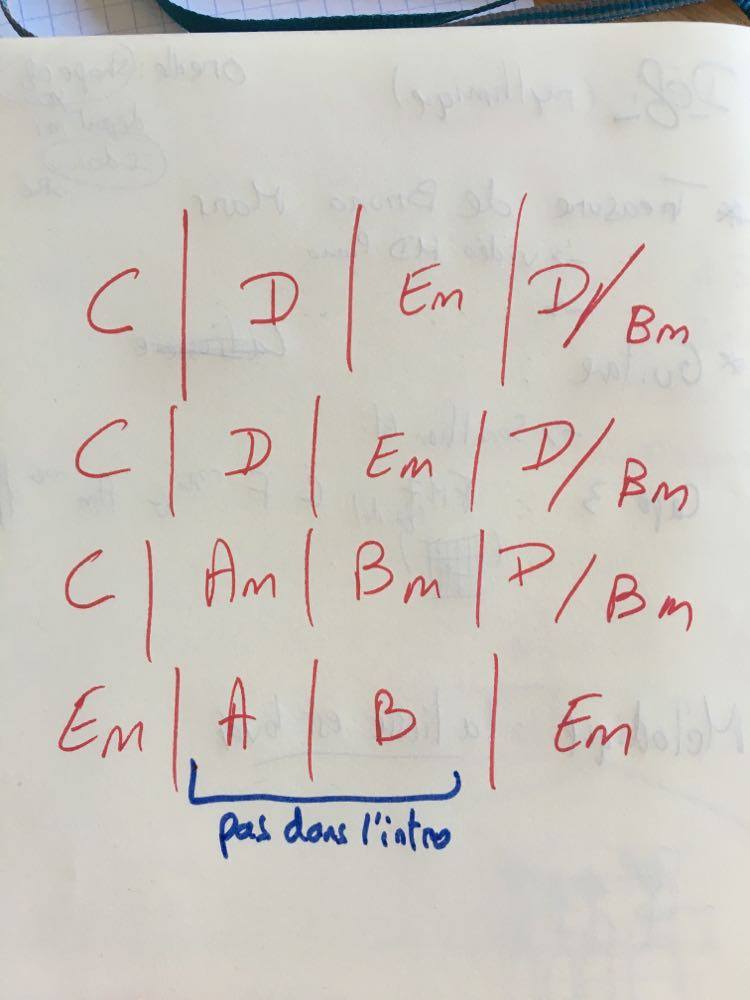 C | D | Em | D/Bm
C | D | Em | D/Bm
C | Am | Bm | D/Bm
Em | A | B | Em
pas dans l'intro